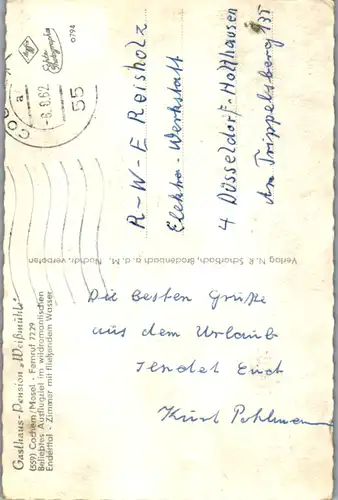 Gasthaus-Pension „Weißmühle"
(559) Cochem/Mosel - Fernruf 7229
Beliebtes Ausflugziel im wildromantischen
Enderttal - Zimmer mit fließendem Wasser
Die besten Grüße
aus dem Urlaub
sendet Euch
Kurt Pohlmann
Verlag N. R. Scharbach, Brodenbach a. d. M. Nachdr. verboten
Agfa
Echte
Photographie
0794
CO
a
-6.8.62
55
R-W-E Reisholz
Elektro-Werkstatt
4 Düsseldorf-Holthausen
Am Trippelsberg 135